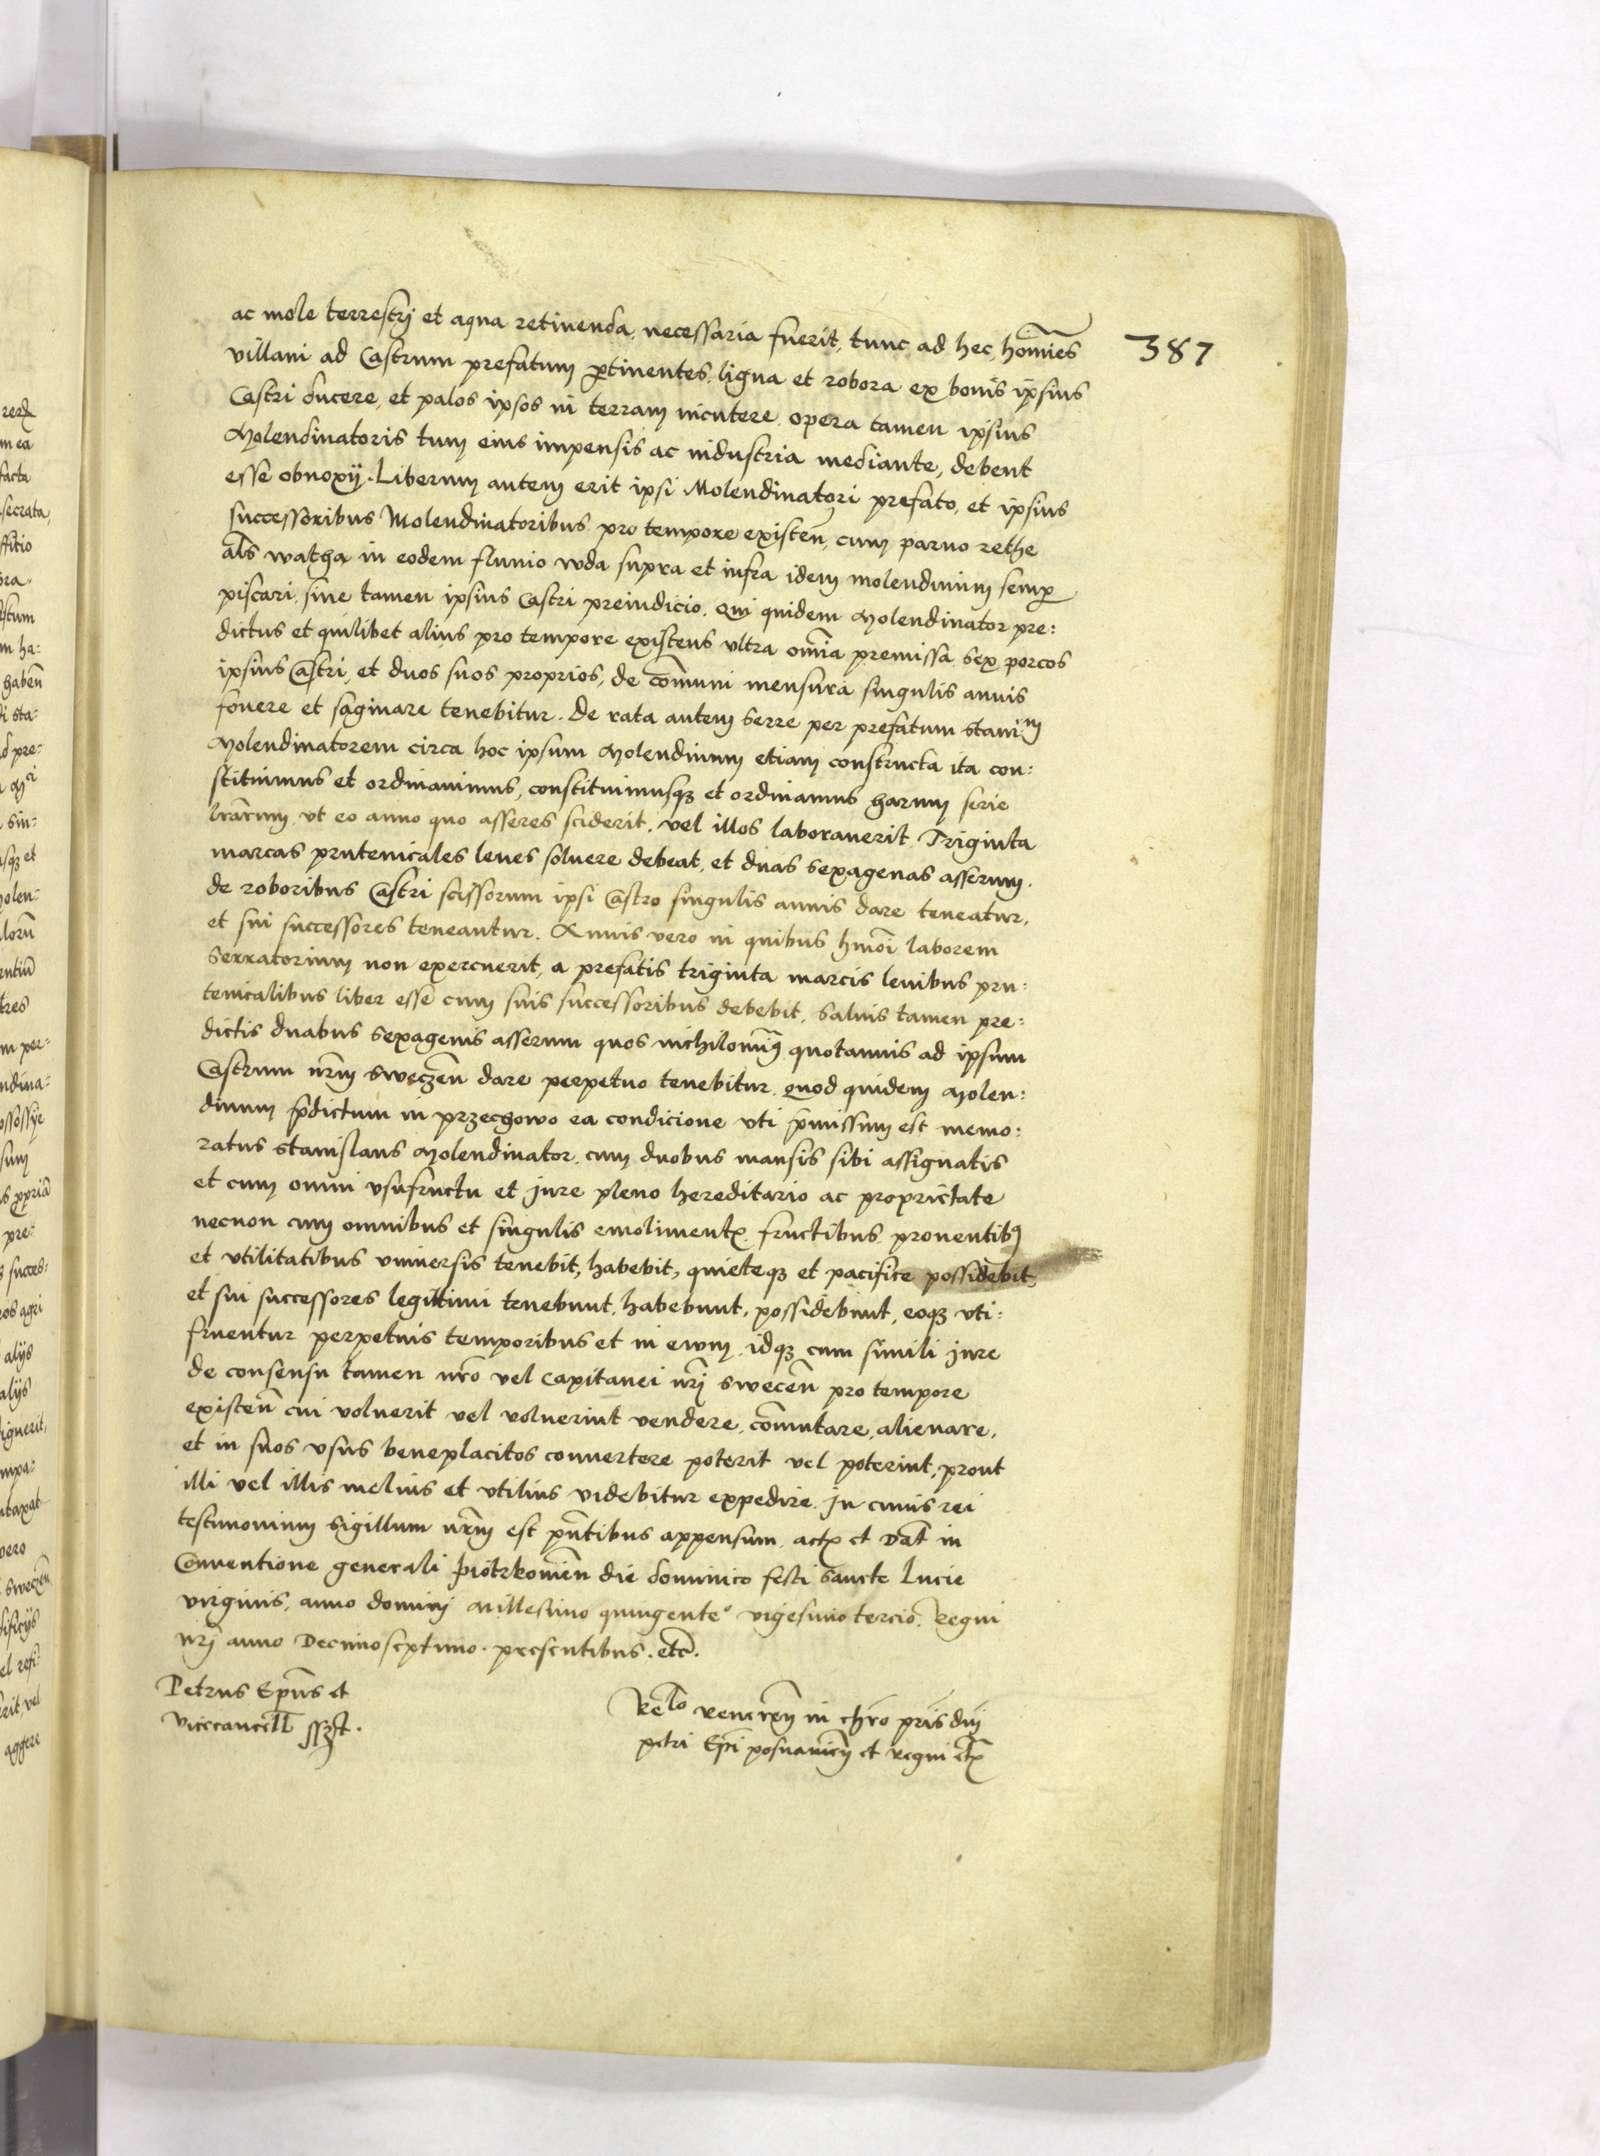 387
ac mole terrestrj et aqua retinenda, necessaria fuerit, tunc ad hec, hom̄ies
villani ad Castrum prefatum ꝑtinentes, ligna et robora ex bonis ipsius
Castri ducere, et palos ipsos in terram incutere opera tamen ipsius
Molendinatoris tum eius impensis ac industria mediante, debent
esse obnoxij. Liberum autem erit ipsi Molendinatori prefato, et ipsius
successoribus Molendinatoribus pro tempore existen̄, cum paruo rethe
al̄s watha in eodem fluuio wda supra et infra idem molendinum semꝑ
piscari, sine tamen ipsius Castri preiudicio. Qui quidem Molendinator pre:
dictus et quilibet alius pro tempore existens vltra om̄ia premissa sex porcos
ipsius Castri, et duos suos proprios, de com̄uni mensura singulis annis
fouere et saginare tenebitur. De rata autem serre per prefatum Staniᷤᵐ
Molendinatorem circa hoc ipsum Molendinum etiam constructa ita con:
stituimus et ordinauimus, constituimusqꝫ et ordinamus harum serie
lr̄arum, vt eo anno quo asseres sciderit, vel illos laborauerit, Triginta
marcas prutenicales leues soluere debeat, et duas sexagenas asserum.
de roboribus Castri scissorum ipsi Castro singulis annis dare teneatur,
et sui successores teneantur. Annis vero in quibus hmōi laborem
serratorium non exercuerit, a prefatis triginta marcis leuibus pru:
tenicalibus liber esse cum suis successoribus debebit, saluis tamen pre:
dictis duabus sexagenis asserum quos nichilomi᷒ quotannis ad ipsum
Castrum nr̄m Sweczen̄ dare perpetuo tenebitur. Quod quidem Molen:
dinum p̄dictum in przechowo ea condicione vti p̄missum est memo:
ratus Stanislaus Molendinator, cum duobus mansis sibi assignatis
et cum omni vsufructu et jure pleno hereditario ac proprietate
necnon cum omnibus et singulis emolimentꝭ fructibus prouentibꝰ
et vtilitatibus vniuersis tenebit, habebit, quieteqꝫ et pacifice possidebit,
et sui successores legittimi tenebunt, habebunt, possidebunt, eoqꝫ vti:
fruentur perpetuis temporibus et in ewm, idqꝫ cum simili jure
de consensu tamen nr̄o vel Capitanei nr̄j Swecen̄ pro tempore
existen̄ cui voluerit vel voluerint vendere, com̄utare, alienare,
et in suos vsus beneplacitos conuertere poterit vel poterint, prout
illi vel illis melius et vtilius videbitur expedire. In cuius rei
testimonium Sigillum nr̄m est pn̄tibus appensum. actꝭ et Dat̄ in
Conuentione generali piotrkouien̄ die dominico festi Sancte Lucie
virginis, anno dominj Millesimo quingenteᵒ vigesimo tercio. Regni
nr̄j anno Decimoseptimo. presentibus. etc̄.
Petrus Ep̄us et
vicecancell̄ sszt.
Rel̄o Reueren̄ in chr̄o pr̄is dn̄j
petri Ep̄i posnanien̄ et regni etꝭ